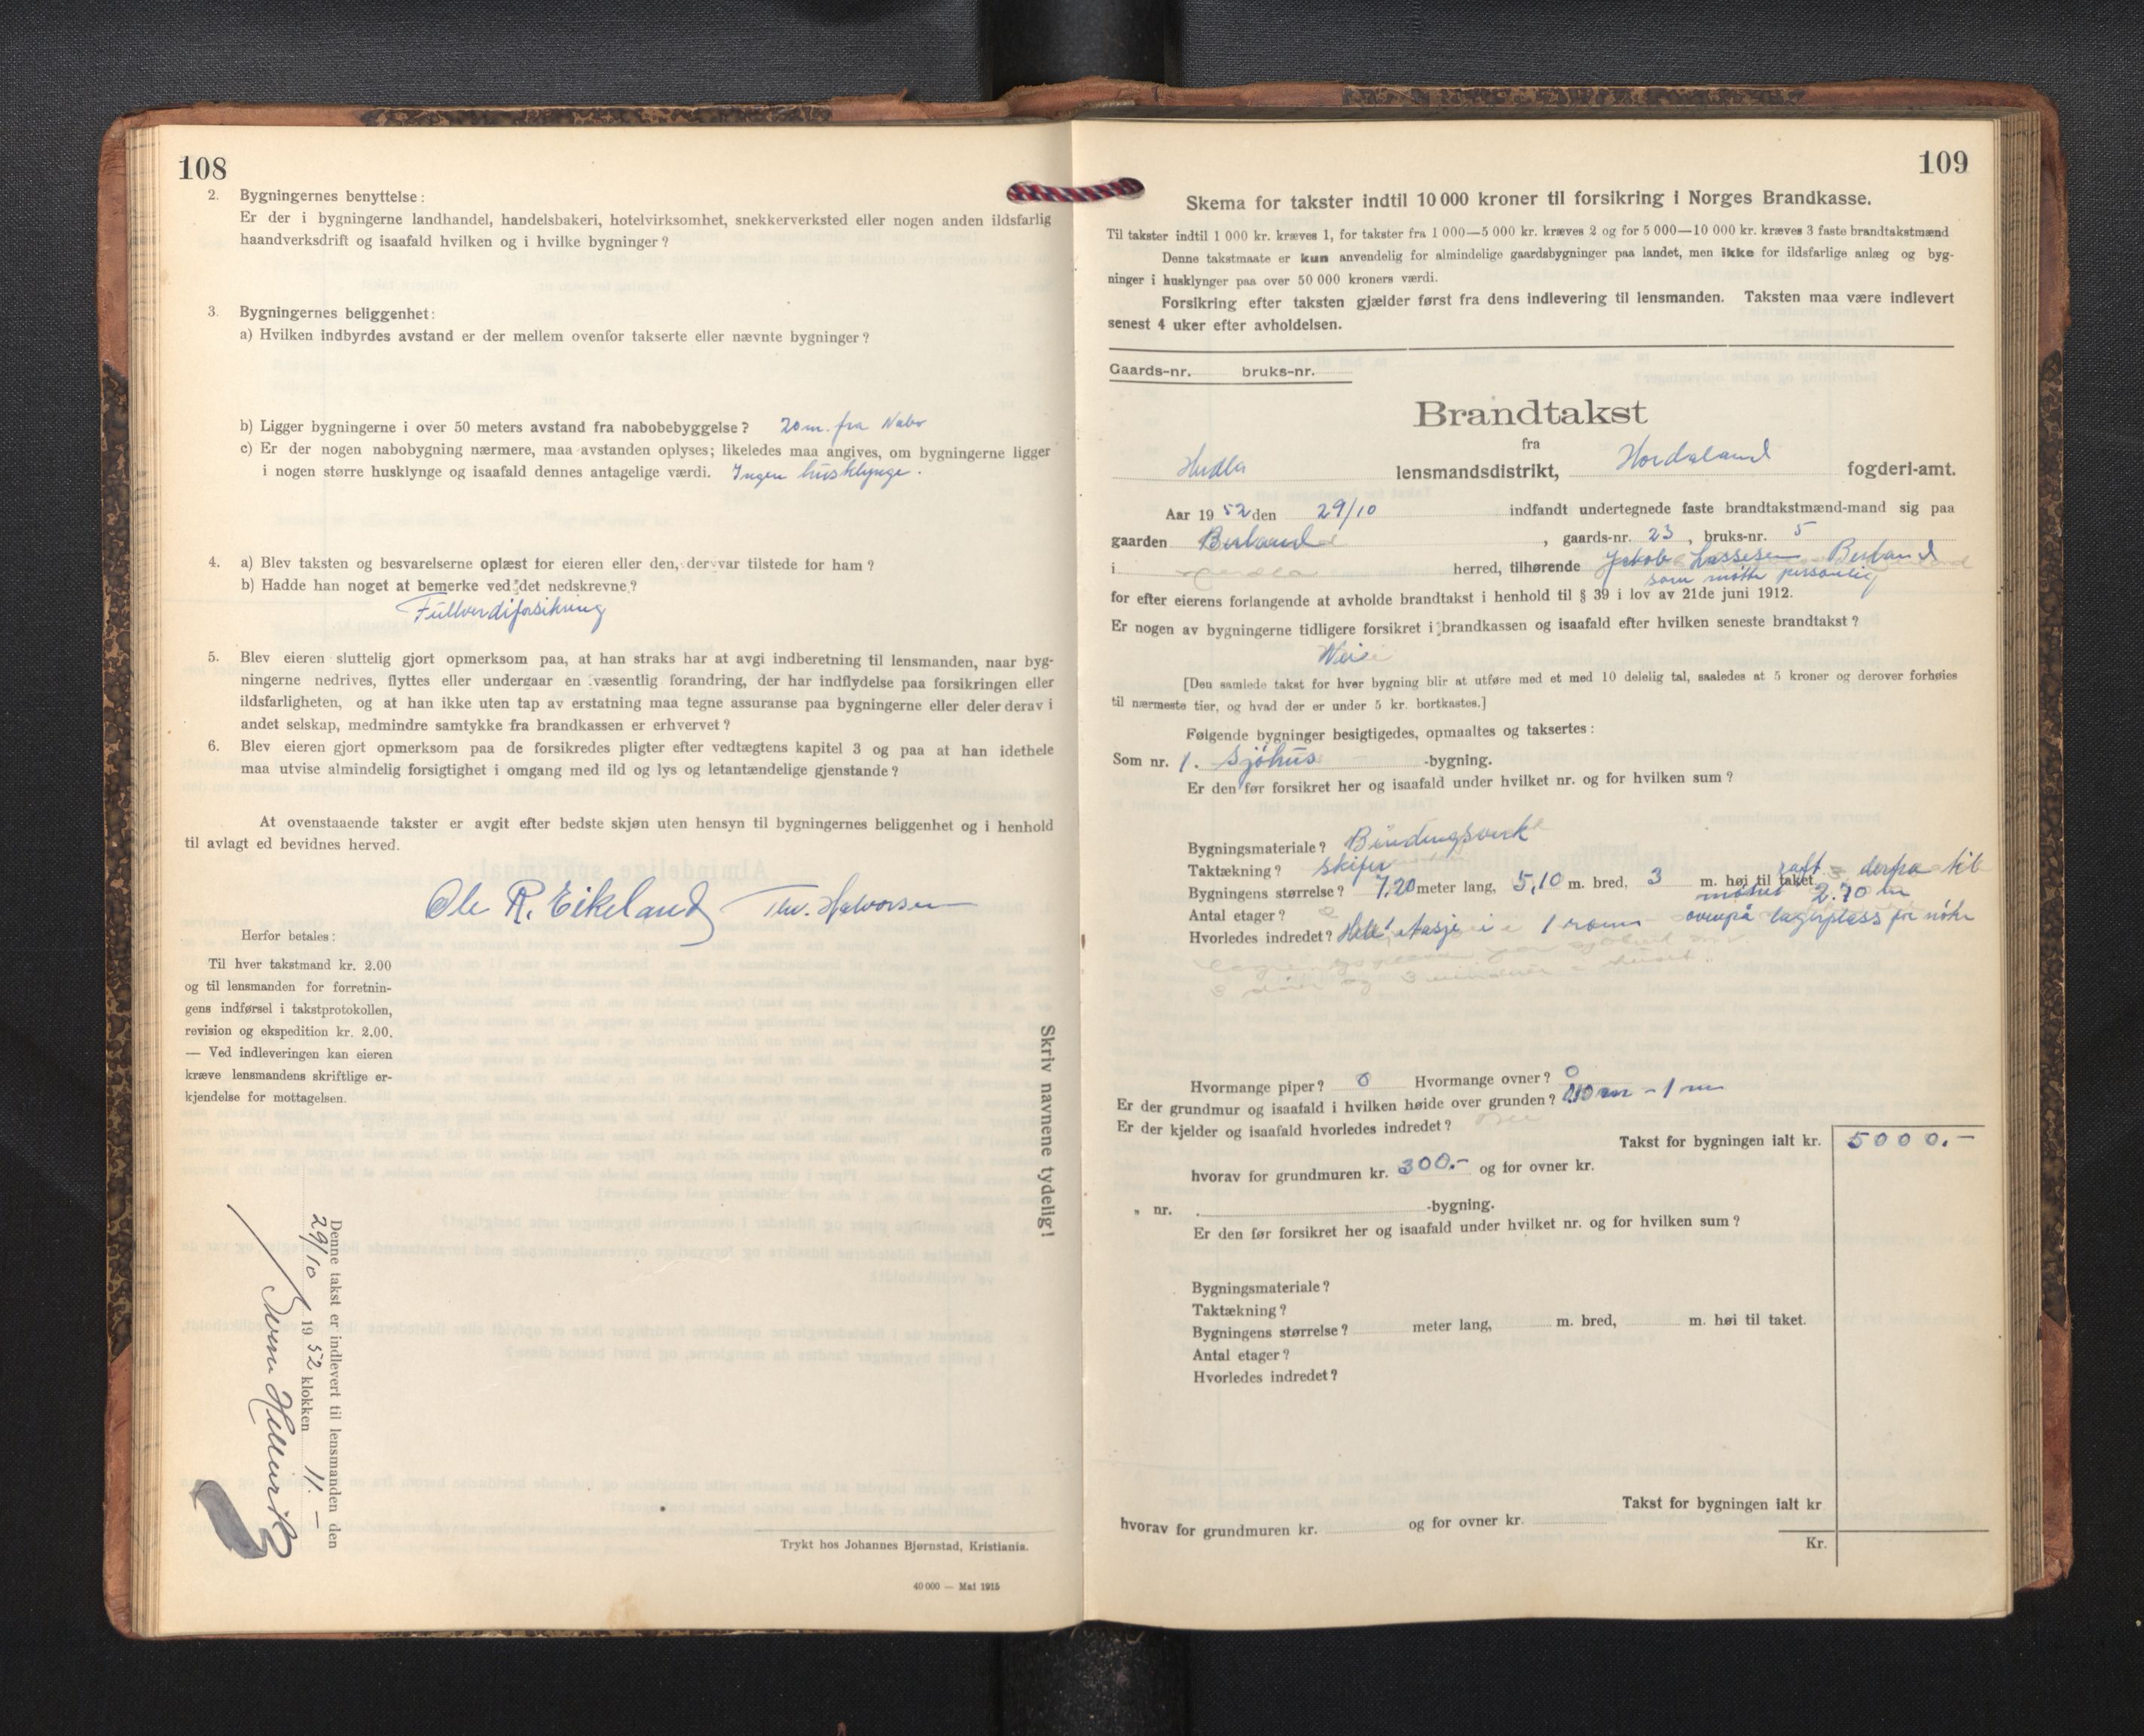 108
2. Bygningernes benyttelse:
Er der i bygningerne landhandel, handelsbakeri, hotelvirksomhet, snekkerverksted eller nogen anden ildsfarlig
haandverksdrift og isaafald hvilken og i hvilke bygninger?
3. Bygningernes beliggenhet:
a) Hvilken indbyrdes avstand er der mellem ovenfor takserte eller nævnte bygninger?
b) Ligger bygningerne i over 50 meters avstand fra nabobebyggelse? 20 m. fra Nabo
c) Er der nogen nabobygning nærmere, maa avstanden oplyses; likeledes maa angives, om bygningerne ligger
i nogen større husklynge og isaafald dennes antagelige værdi. Ingen husklynge.
4. a) Blev taksten og besvarelserne oplæst for eieren eller den, der var tilstede for ham?
b) Hadde han noget at bemerke ved det nedskrevne?
Fullverdiforsikring
5. Blev eieren sluttelig gjort opmerksom paa, at han straks har at avgi indberetning til lensmanden, naar byg-
ningerne nedrives, flyttes eller undergaar en væsentlig forandring, der har indflydelse paa forsikringen eller
ildsfarligheten, og at han ikke uten tap av erstatning maa tegne assuranse paa bygningerne eller deler derav i
andet selskap, medmindre samtykke fra brandkassen er erhvervet?
6. Blev eieren gjort opmerksom paa de forsikredes pligter efter vedtægtens kapitel 3 og paa at han idethele
maa utvise almindelig forsigtighet i omgang med ild og lys og letantændelige gjenstande?
At ovenstaaende takster er avgit efter bedste skjøn uten hensyn til bygningernes beliggenhet og i henhold
til avlagt ed bevidnes herved.
Ole R. Eikeland Thv. Halvorsen
Herfor betales:
Til hver takstmand kr. 2.00
og til lensmanden for forretnin-
gens indførsel i takstprotokollen,
revision og ekspedition kr. 2.00.
— Ved indleveringen kan eieren
kræve lensmandens skriftlige er-
kjendelse for mottagelsen.
Skriv navnene tydelig!
Denne takst er indlevert til lensmanden den
29/10 1952 klokken 11.-
Trykt hos Johannes Bjørnstad, Kristiania.
40 000 — Mai 1915
109
Skema for takster indtil 10 000 kroner til forsikring i Norges Brandkasse.
Til takster indtil 1 000 kr. kræves 1, for takster fra 1 000—5 000 kr. kræves 2 og for 5 000—10 000 kr. kræves 3 faste brandtakstmænd
Denne takstmaate er kun anvendelig for almindelige gaardsbygninger paa landet, men ikke for ildsfarlige anlæg og byg-
ninger i husklynger paa over 50 000 kroners værdi.
Forsikring efter taksten gjælder først fra dens indlevering til lensmanden. Taksten maa være indlevert
senest 4 uker efter avholdelsen.
Gaards-nr. bruks-nr.
Brandtakst
fra
Herdla lensmandsdistrikt, Hordaland fogderi-amt.
Aar 1952 den 29/10 indfandt undertegnede faste brandtakstmænd-mand sig paa
gaarden Berland, gaards-nr. 23, bruks-nr. 5
i Herdla herred, tilhørende Jakob Lassesen Berland
som møtte personlig
for efter eierens forlangende at avholde brandtakst i henhold til § 39 i lov av 21de juni 1912.
Er nogen av bygningerne tidligere forsikret i brandkassen og isaafald efter hvilken seneste brandtakst?
Nei
[Den samlede takst for hver bygning blir at utføre med et med 10 delelig tal, saaledes at 5 kroner og derover forhøies
til nærmeste tier, og hvad der er under 5 kr. bortkastes.]
Følgende bygninger besigtigedes, opmaaltes og taksertes:
Som nr. 1. Sjøhus -bygning.
Er den før forsikret her og isaafald under hvilket nr. og for hvilken sum?
Bygningsmateriale? Bindingsverk
Taktækning? Skifer
Bygningens størrelse? 7,20 meter lang, 5,10 m. bred, 3 m. høi til taket raft derfra til
mønet 2.70 m
Antal etager? 2
Hvorledes indredet? Hele 1 etasje i 1 rom ovenpå lagerplass for nøter
3 dører og 3 vinduer i huset.
Hvormange piper? 0 Hvormange ovner? 0
Er der grundmur og isaafald i hvilken høide over grunden? - 1 m
Er der kjelder og isaafald hvorledes indredet? Nei
Takst for bygningen ialt kr. 5000.-
hvorav for grundmuren kr. 300.- og for ovner kr.
„ nr. -bygning.
Er den før forsikret her og isaafald under hvilket nr. og for hvilken sum?
Bygningsmateriale?
Taktækning?
Bygningens størrelse? meter lang, m. bred, m. høi til taket.
Antal etager?
Hvorledes indredet?
Takst for bygningen ialt kr
hvorav for grundmuren kr. og for ovner kr.
Kr.